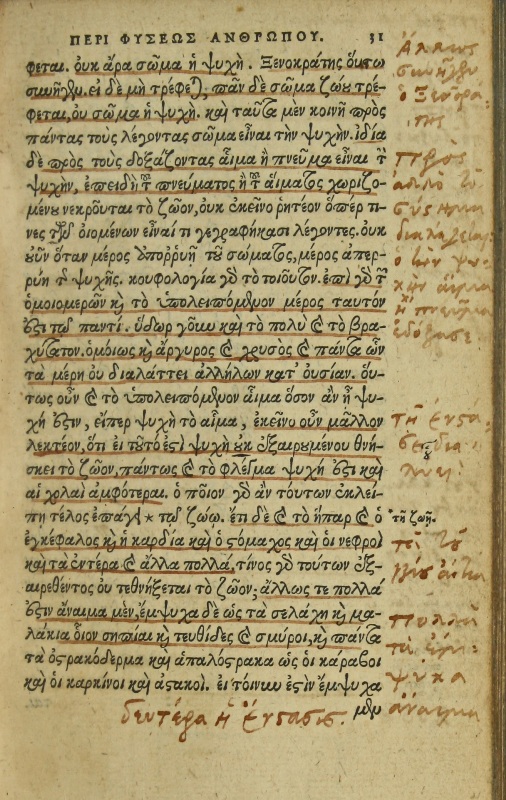 ΠΕΡΙ ΦΥΣΕΩΣ ΑΝΘΡΩΠΟΥ. 31
φεται. οὐκ ἄρα σῶμα ἡ ψυχή. Ξενοκράτης οὕτω
συνῆγεν. εἰ δὲ μὴ τρέφεται, πᾶν δὲ σῶμα ζώου τρέ-
φεται, οὐ σῶμα ἡ ψυχή. καὶ ταῦτα μὲν κοινῇ πρὸς
πάντας τοὺς λέγοντας σῶμα εἶναι τὴν ψυχήν. ἰδίᾳ
δὲ πρὸς τοὺς δοξάζοντας αἷμα ἢ πνεῦμα εἶναι τὴν
ψυχὴν, ἐπειδὴ τοῦ πνεύματος ἢ τοῦ αἵματος χωριζο-
μένου νεκροῦται τὸ ζῶον, οὐκ ἐκεῖνο ῥητέον ὅπερ τι-
νες τῶν οἰομένων εἶναί τι γεγραφήκασι λέγοντες. οὐκ
οὖν ὅταν μέρος ἀπορρυῇ τοῦ σώματος, μέρος ἀπερ-
ρύη τῆς ψυχῆς. κουφολογία γὰρ τὸ τοιοῦτον. ἐπὶ γὰρ τῶν
ὁμοιομερῶν καὶ τὸ ὑπολειπόμενον μέρος ταυτόν
ἐστι τῷ παντί. ὕδωρ γοῦν καὶ τὸ πολὺ καὶ τὸ βρα-
χύτατον. ὁμοίως καὶ ἄργυρος καὶ χρυσὸς καὶ πάντα ὧν
τὰ μέρη οὐ διαλάττει ἀλλήλων κατ' οὐσίαν. οὕ-
τως οὖν καὶ τὸ ὑπολειπόμενον αἷμα ὅσον ἂν ᾖ ψυ-
χή ἐστιν, εἴπερ ψυχὴ τὸ αἷμα, ἐκεῖνο οὖν μᾶλλον
λεκτέον, ὅτι εἰ τοῦτό ἐστι ψυχὴ οὗ ἐξαιρουμένου θνή-
σκει τὸ ζῶον, πάντως καὶ τὸ φλεῖγμα ψυχή ἐστι καὶ
αἱ χολαὶ ἀμφότεραι. ὁ ποῖον γὰρ ἂν τούτων ἐκλεί-
πῃ τέλος ἐπάγει * τῷ ζώῳ. ἔτι δὲ καὶ τὸ ἧπαρ καὶ ὁ
* τῇ ζωῇ.
ἐγκέφαλος καὶ ἡ καρδία καὶ ὁ στόμαχος καὶ οἱ νεφροὶ
καὶ τὰ ἔντερα καὶ ἄλλα πολλά, τίνος γὰρ τούτων ἐξ-
αιρεθέντος οὐ τεθνήξεται τὸ ζῶον, ἄλλως τε πολλά
ἐστιν ἄναιμα μὲν, ἔμψυχα δὲ ὡς τὰ σελάχη καὶ μα-
λάκια οἷον σηπίαι καὶ τευθίδες καὶ σμύροι, καὶ πάντα
τὰ ὀστρακόδερμα καὶ ἁπαλόστρακα ὡς οἱ κάραβοι
καὶ οἱ καρκίνοι καὶ ἀστακοί. εἰ τοίνυν ἐστὶν ἔμψυχα
μὲν
δευτέρα ἡ ἔνστασις.
Ἄλλως
συνῆγεν
ὁ Ξενοκρά-
της
Πρὸς
τοὺς
ψυ-
χὴν αἷμα
ἢ πνεῦμα
Πολλὰ
τὰ ἔμ-
ψυχα
ἄναιμα